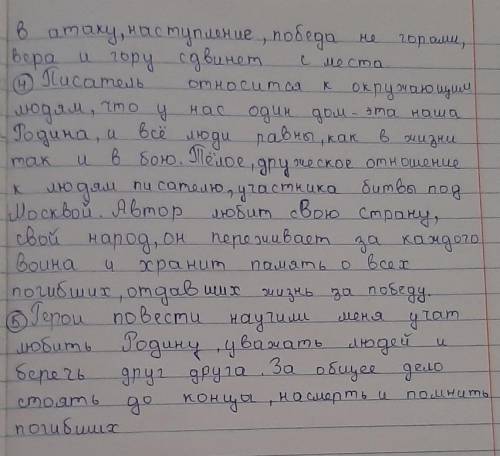 в атаку, наступление, победа не горами,
вера и гору сдвинет с места.
4 Писатель относится к окружающим
людям, что у нас один дом - эта наша
Родина, и всё люди равны, как в жизни
так и в бою. Тёлое, дружеское отношение
к людям писателю, участника битвы под
Москвой. Автор любит свою страну,
свой народ, он переживает за каждого
воина и хранит память о всех
погибших, отдавших жизнь за победу.
5 Герои повести научим меня учат
любить Родину, уважать людей и
беречь друг друга. За общее дело
стоять до концы, насмерть и помнить
погибших